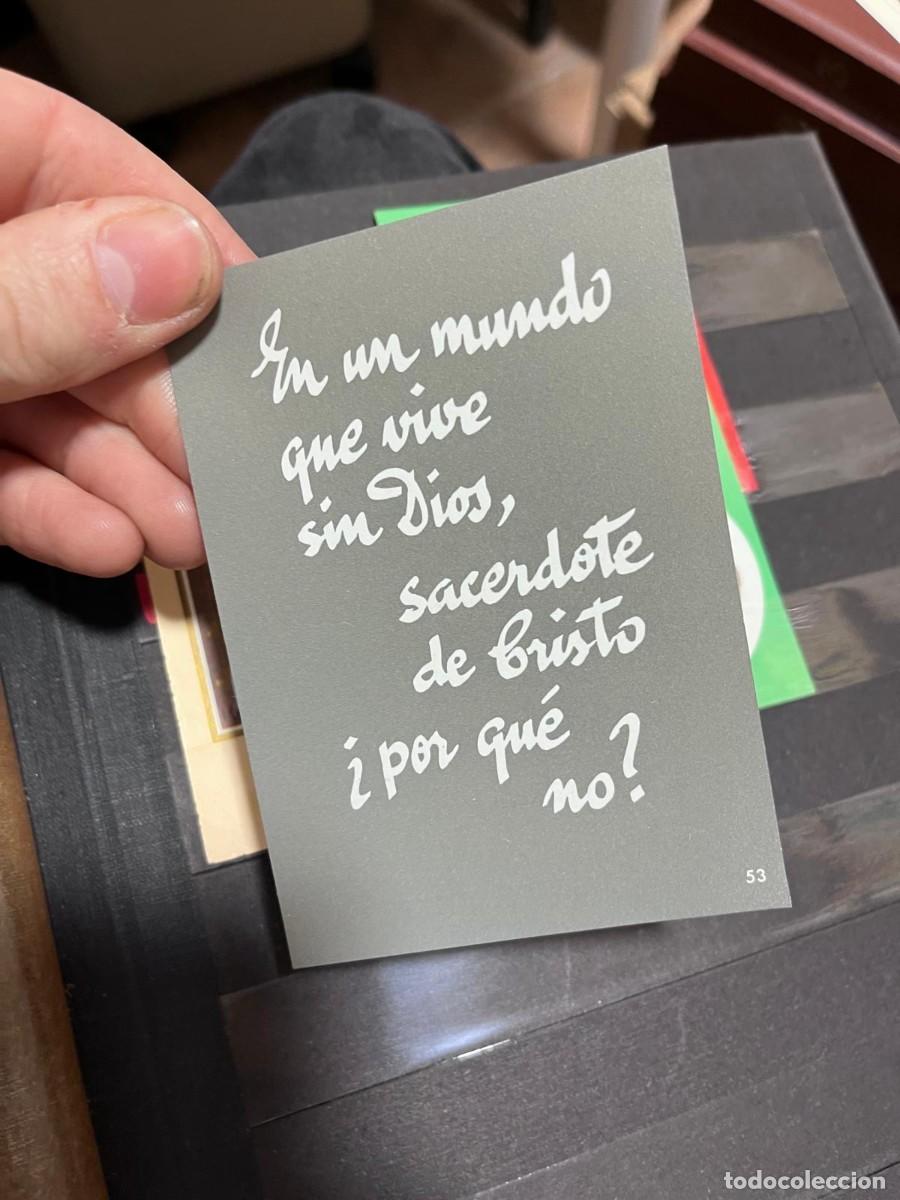 En un mundo
que vive
sin Dios,
sacerdote
de Cristo
¿por qué
no?
53
todocoleccion